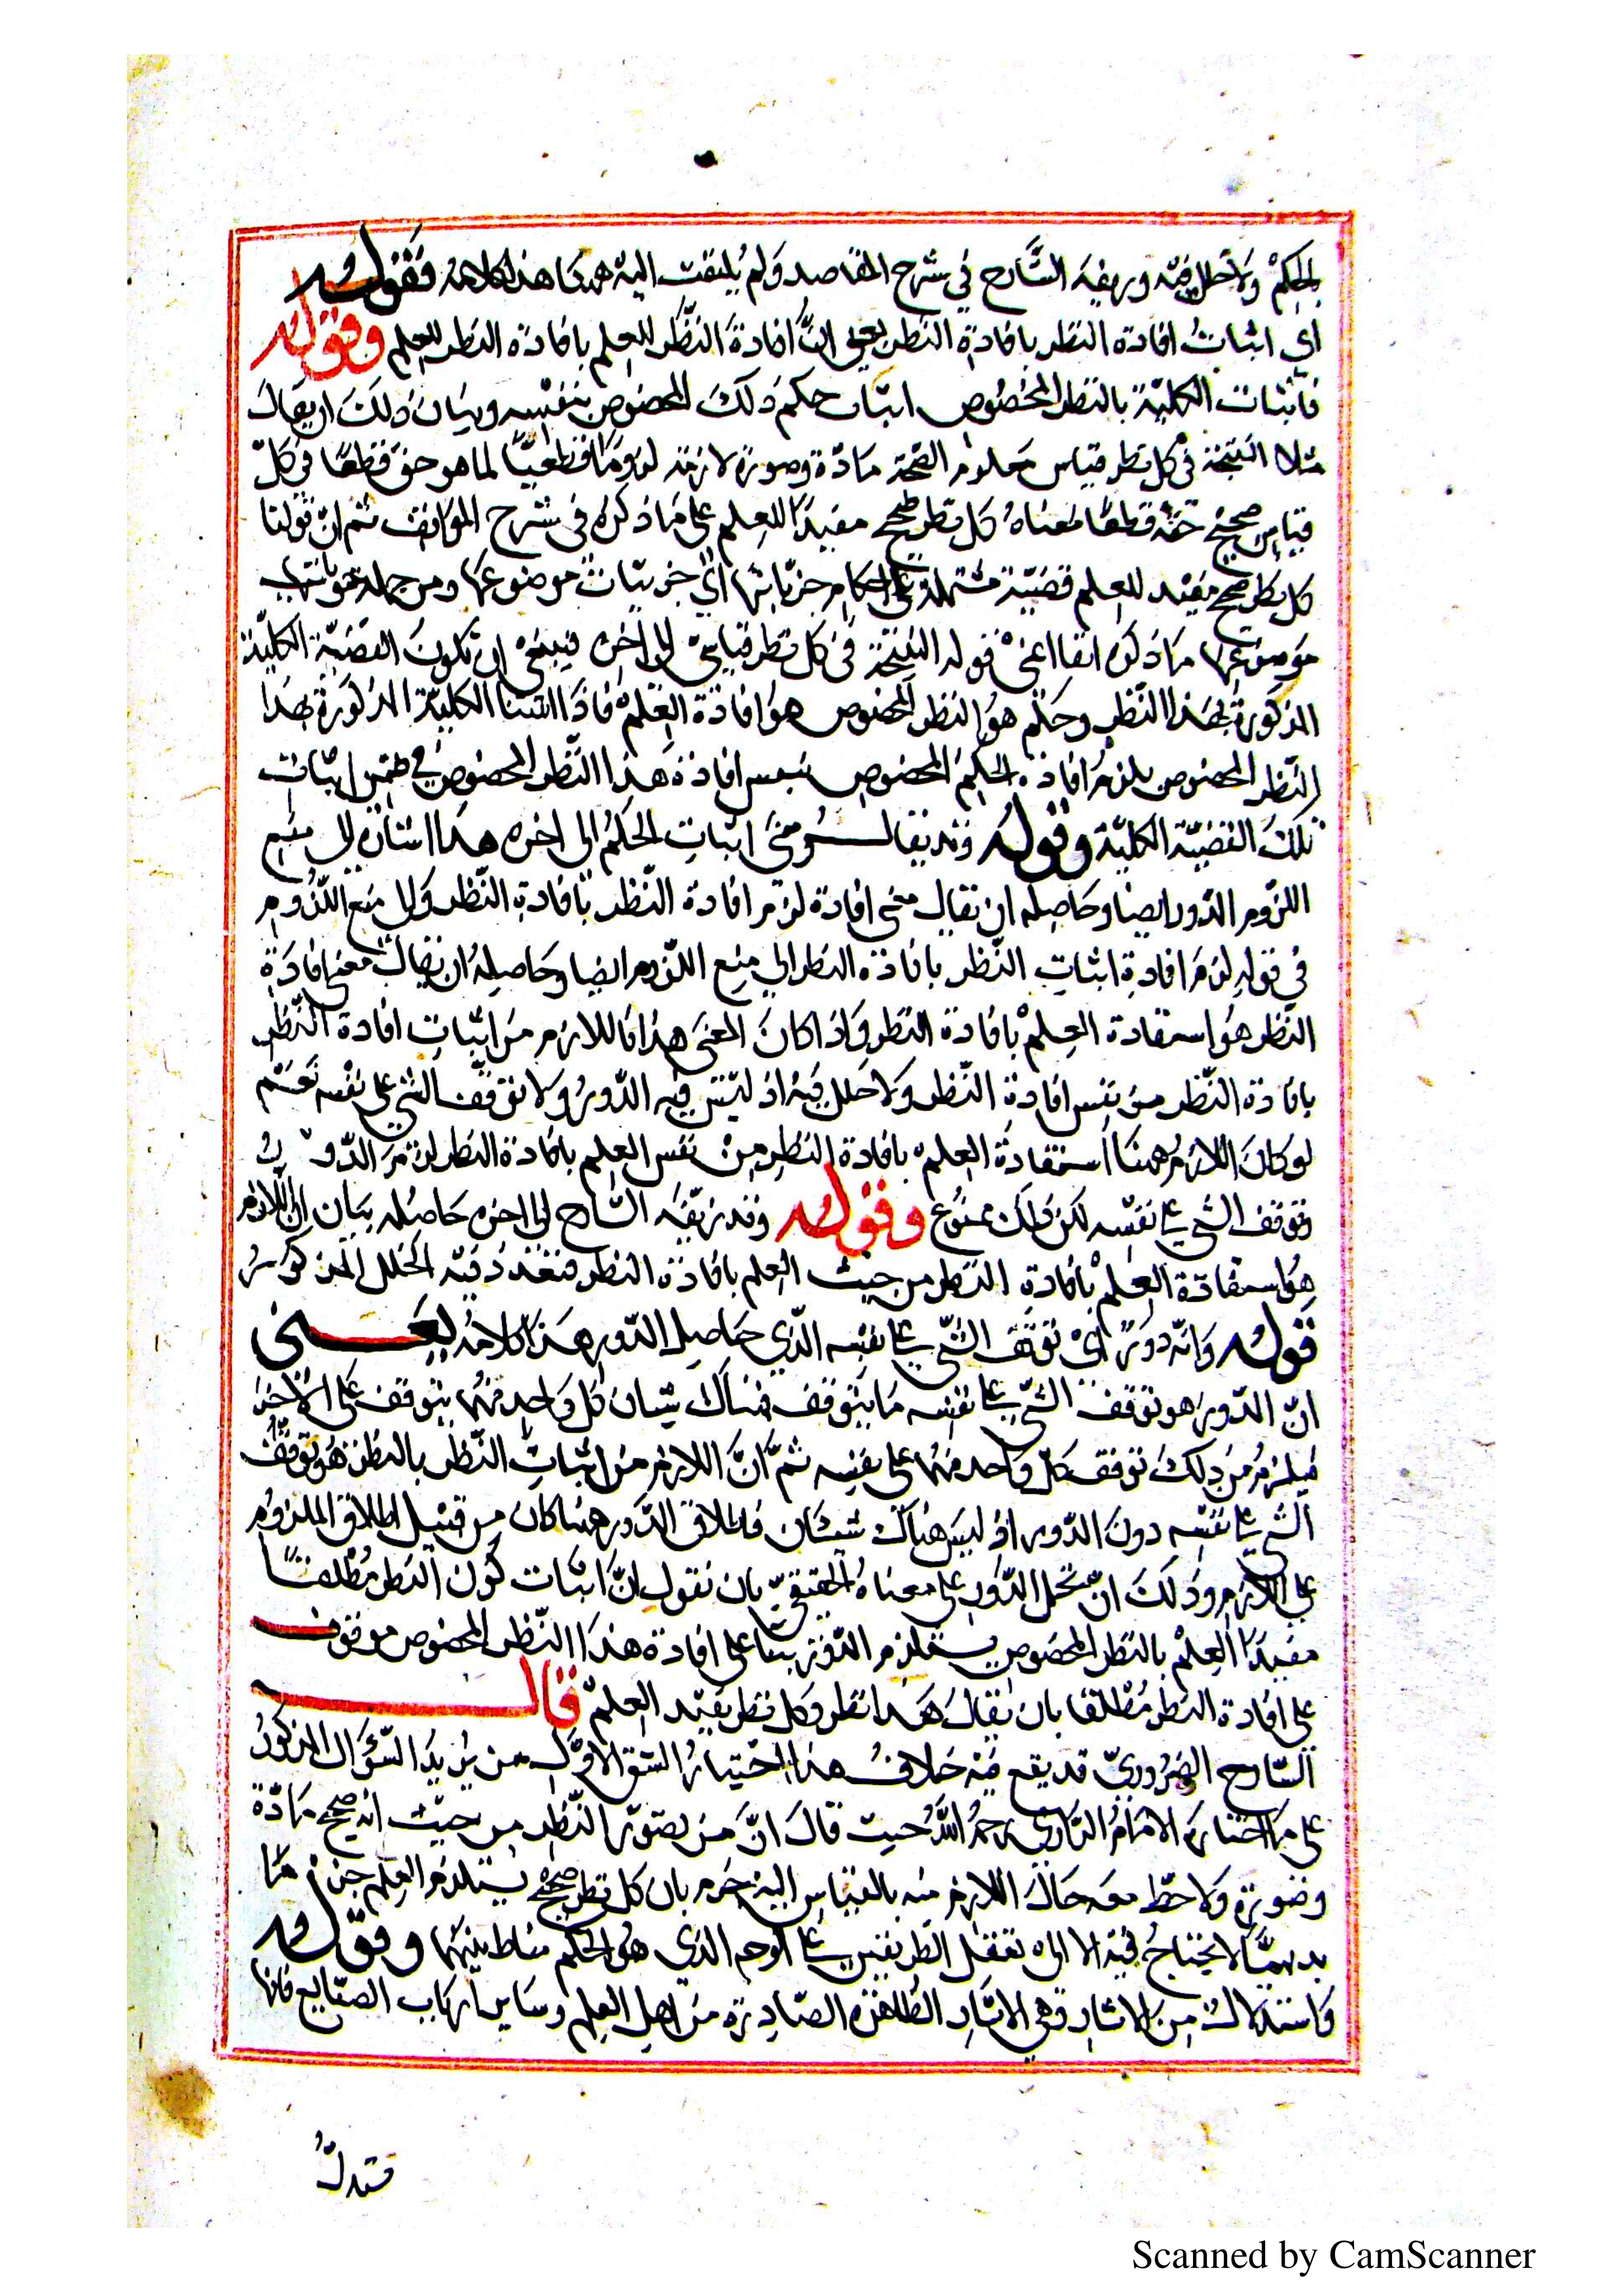 بالحكم ولا خلل فيه وزيفه الشارح في شرح المقاصد ولم يلتفت اليه ههنا هذا كلامه فقوله
اي اثبات افادة النظر بافادة النظر يعني اثبات افادة النظر للعلم بافادة النظر للعلم وقوله
فاثبات الكلية بالنظر المخصوص اثبات حكم ذلك المخصوص بنفسه وبيان ذلك ان يقال
مثلا النتيجة في كل نظر قياس معلوم الصحة مادة وصورة لازمة لزوما قطعيا لما هو حق قطعا في كل
قياس صحيح حقة قطعا معناه كل نظر صحيح مفيدا للعلم على ما ذكره في شرح المواقف ثم ان قولنا
كل نظر صحيح مفيد للعلم قضية مشتملة على احكام جزئياتها اي جزئيات موضوعها ومن جملة
موضوعها ما ذكره انفا اعني قوله النتيجة في كل نظر قياسي الى اخره فينبغي ان تكون القضية الكلية
المذكورة لهذا النظر وحكم هو النظر المخصوص هو افادة العلم فاذا اثبتنا الكلية المذكورة بهذا
النظر المخصوص يلزم افادة الحكم المخصوص بنفس افادة هذا النظر المخصوص في ضمن اثبات
تلك القضية الكلية وقوله وقد يقال معنى اثبات الحكم الى اخره هذا اشارة الى منع
اللزوم الدور ايضا وحاصله ان يقال معنى افادة لزم افادة النظر بافادة النظر والى منع اللزوم
في قوله لزم افادة اثبات النظر بافادة النظر الى منع اللزوم ايضا وحاصله ان يقال معنى افادة
النظر هو استفادة العلم بافادة النظر واذا كان المعنى هذا فاللازم من اثبات افادة النظر
بافادة النظر من نفس افادة النظر ولا خلل فيه اذ ليس فيه الدور ولا توقف الشيء على نفسه نعم
لو كان اللازم ههنا استفادة العلم بافادة النظر من نفس العلم بافادة النظر لزم الدور
وتوقف الشيء على نفسه لكن ذلك ممنوع وقوله وقد زيفه الشارح الى اخره حاصله بيان ان اللازم
هو استفادة العلم بافادة النظر من حيث العلم بافادة النظر فتعذر فيه الخلل المذكور
قوله وانه دور اي توقف الشيء على نفسه الذي حاصل الدور هذا كلامه يعني
ان الدور هو توقف الشيء على نفسه ما يتوقف هناك شيئان كل واحد منهما يتوقف على الاخر
فيلزم من ذلك توقف كل واحد منهما على نفسه ثم ان اللازم من اثبات النظر بالنظر هو توقف
الشيء على نفسه دون الدور اذ ليس هناك شيئان فاطلاق الدور ههنا كان من قبيل اطلاق الملزوم
على اللازم وذلك ان تحمل الدور على معناه الحقيقي بان نقول ان اثبات كون النظر مطلقا
مفيدا العلم بالنظر المخصوص يستلزم الدور بنا على افادة هذا النظر المخصوص موقوف
على افادة النظر مطلقا بان يقال هذا نظر وكل نظر يفيد العلم قال
الشارح الضروري قد يقع فيه خلاف هذا اختيار الشق الاول من السؤال المذكور
على ما اختاره الامام الرازي رحمه الله حيث قال ان من تصور النظر من حيث انه صحيح مادة
وصورة ولاحظ معه حال اللازم منه بالقياس اليه جزم بان كل نظر صحيح يستلزم العلم جزما
بديهيا لا يحتاج فيه الا الى تعقل الطرفين على الوجه الذي هو الحكم مناط بينهما وقوله
فاستدلال من الاثار وهي الاثار الظاهرة الصادرة من اهل العلم وساير ارباب الصنايع فانها
فتدل
Scanned by CamScanner